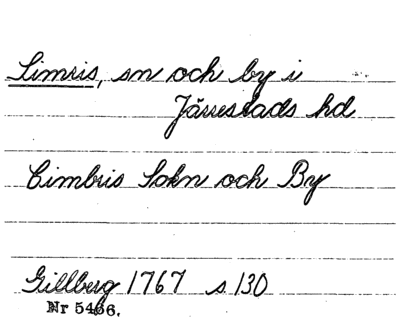 Simris, sn och by i
Järrestads hd
Cimbris Sokn och By
Gillberg 1767 s 130
Nr 5466.